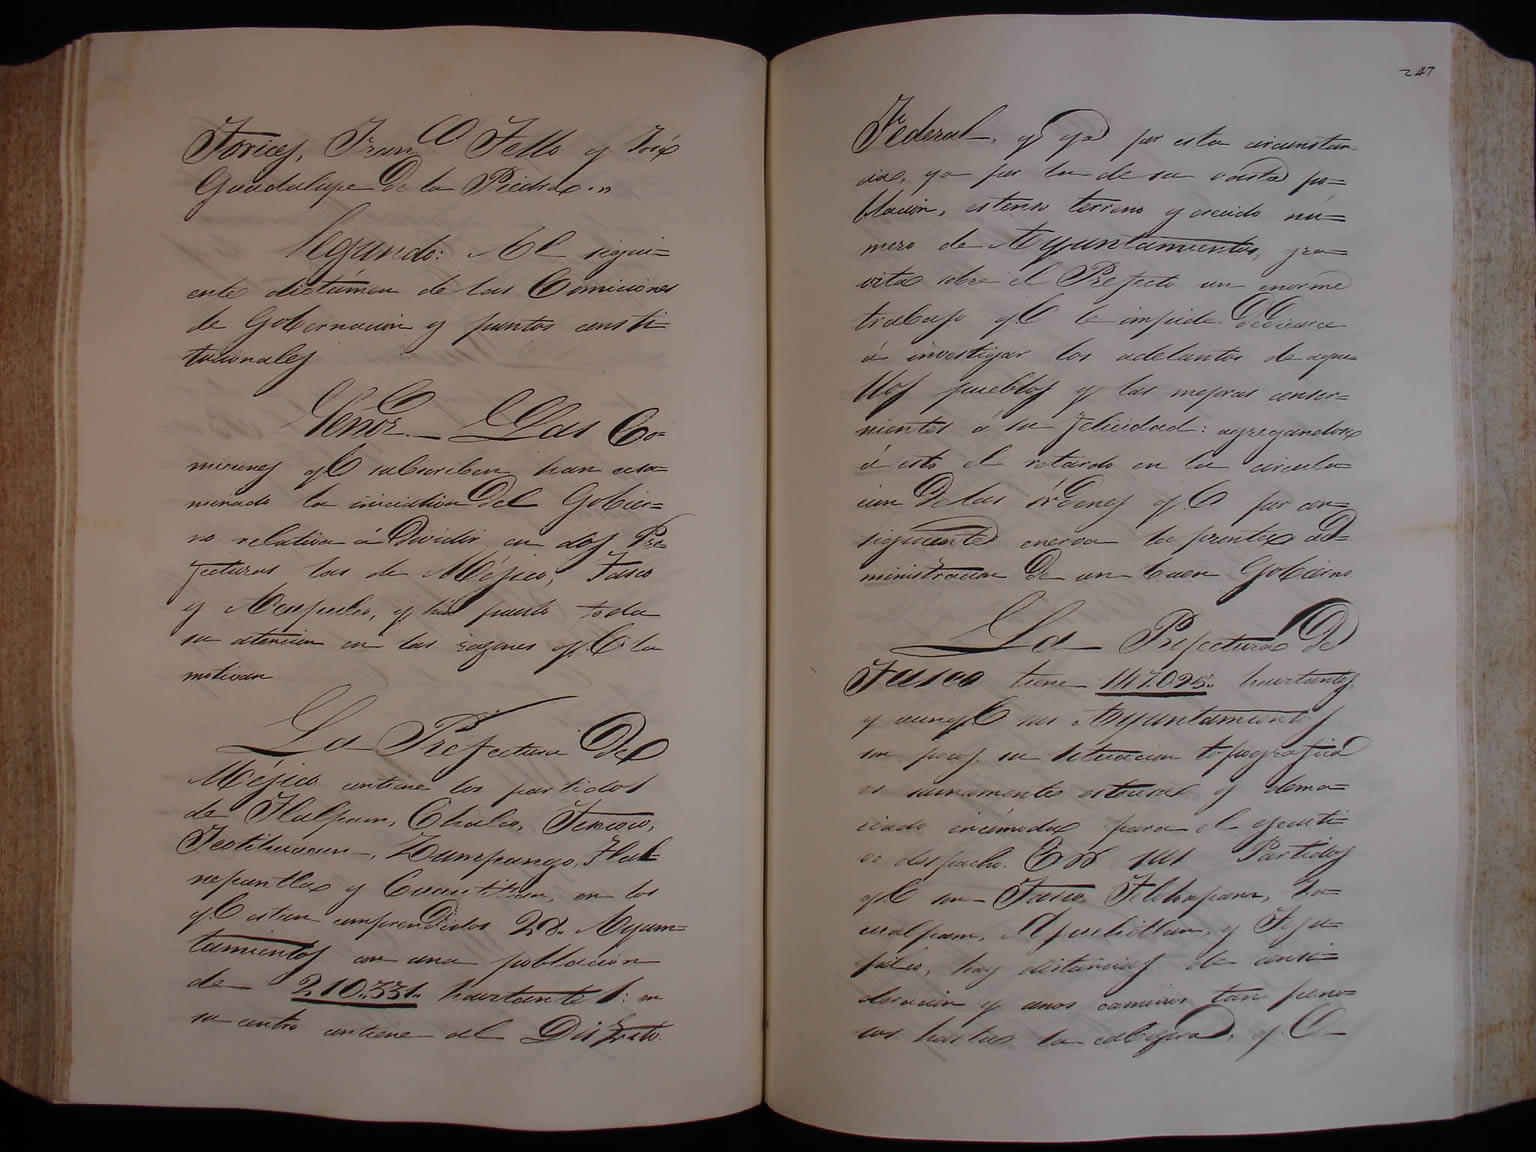 Torices, Franco Tello y José
Guadalupe De la Piedra.,,
Segundo: Al sigui=
ente dictámen de las Comiciones
de Gobernacion y puntos consti=
tucionales
Señor. Las Co=
miciones qe subscriben han ecsa=
minado la iniciativa Del Gobier=
no relativa á Dividir en dos Pre=
fecturas las de Méjico, Tasco
y Acapulco, y han puesto toda
su atencion en las razones qe la
motivan
La Prefectura De
Méjico contiene los partidos
de Tlalpam, Chalco, Texcoco,
Teotihuacan, Zumpango, Tlal=
nepantla y Cuautitlan, en los
qe estan comprendidos 28,, Ayun=
tamientos con una poblacion
de 210.,331.,, havitantes: en
su centro contiene al Distrito
247
Federal, y ya por esta circunstan=
cia, ya por la de su vasta po=
blacion, estenso terreno y crecido nú=
mero de Ayuntamientos, gra=
vita sobre el Prefecto un enorme
trabajo qe le impide dedicarse
á investigar los adelantos de aque
llos pueblos y las mejoras conser=
nientes á su felicidad: agregandose
á esto el retardo en la circula=
cion De las órdenes qe por con=
siguiente enerva la pronta ad=
ministracion De un buen Gobierno
La Prefectura De
Tasco tiene 147.025.. havitantes,
y aunqe sus Ayuntamientos
son pocos, su situacion topografica
es sumamente estensa y dema=
ciado incómoda para el ejecuti=
vo despacho. En sus Partidos
qe son Tasco, Teloloapam, Za=
cualpam, Ajuchitlan, y Tepe=
cuacuilco, hay distancias de consi=
deracion y unos caminos tan peno=
sos hasta la cabecera, qe